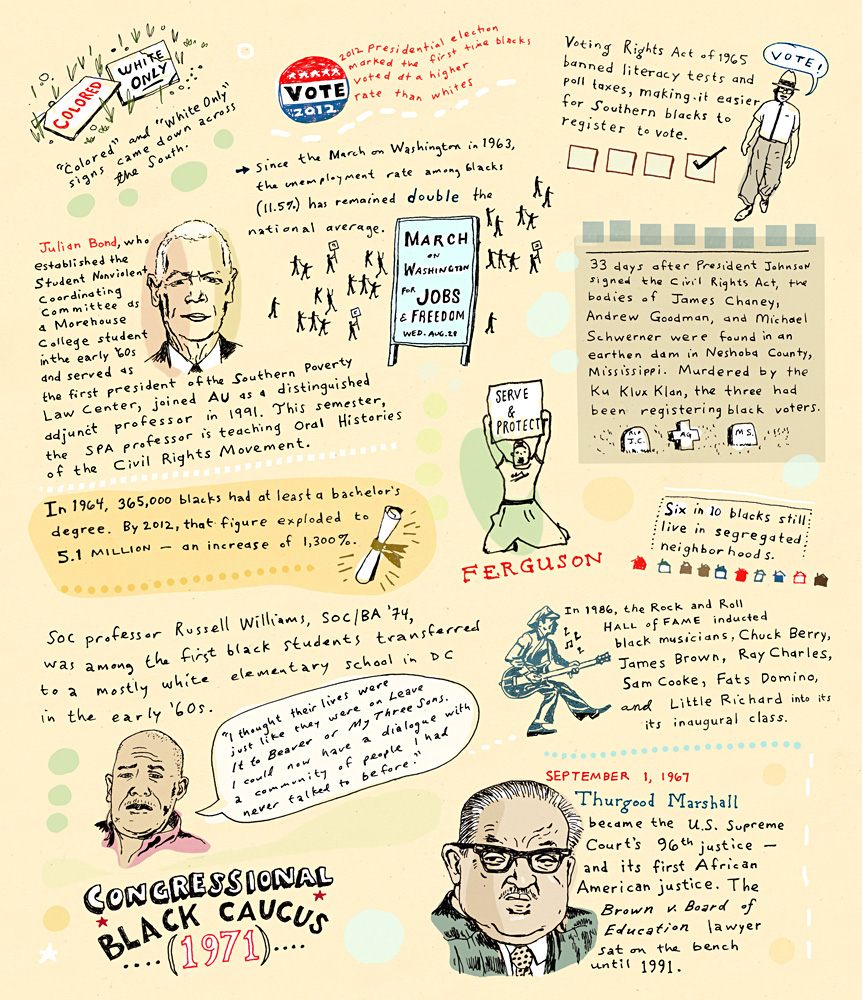 COLORED
WHITE
ONLY
"Colored" and "White Only"
signs came down across
the South.
VOTE
2012
2012 Presidential election
marked the first time blacks
voted at a higher
rate than whites
Voting Rights Act of 1965
banned literacy tests and
poll taxes, making it easier
for Southern blacks to
register to vote.
VOTE!
Since the March on Washington in 1963,
the unemployment rate among blacks
(11.5%) has remained double the
national average.
MARCH
ON
WASHINGTON
FOR JOBS
& FREEDOM
WED. AUG. 28
Julian Bond, who
established the
Student Nonviolent
Coordinating
Committee as
a Morehouse
College student
in the early '60s
and served as
the first president of the Southern Poverty
Law Center, joined AU as a distinguished
adjunct professor in 1991. This semester,
the SPA professor is teaching Oral Histories
of the Civil Rights Movement.
33 days after President Johnson
signed the Civil Rights Act, the
bodies of James Chaney,
Andrew Goodman, and Michael
Schwerner were found in an
earthen dam in Neshoba County,
Mississippi. Murdered by the
Ku Klux Klan, the three had
been registering black voters.
RIP
J.C.
AG
M.S.
SERVE
&
PROTECT
FERGUSON
In 1964, 365,000 blacks had at least a bachelor's
degree. By 2012, that figure exploded to
5.1 MILLION — an increase of 1,300%.
Six in 10 blacks still
live in segregated
neighborhoods.
SOC professor Russell Williams, SOC/BA '74,
was among the first black students transferred
to a mostly white elementary school in DC
in the early '60s.
"I thought their lives were
just like they were on Leave
It to Beaver or My Three Sons.
I could now have a dialogue with
a community of people I had
never talked to before."
In 1986, the Rock and Roll
HALL of FAME inducted
black musicians, Chuck Berry,
James Brown, Ray Charles,
Sam Cooke, Fats Domino,
and Little Richard into its
its inaugural class.
CONGRESSIONAL
BLACK CAUCUS
....(1971)....
SEPTEMBER 1, 1967
Thurgood Marshall
became the U.S. Supreme
Court's 96th justice —
and its first African
American justice. The
Brown v. Board of
Education lawyer
sat on the bench
until 1991.